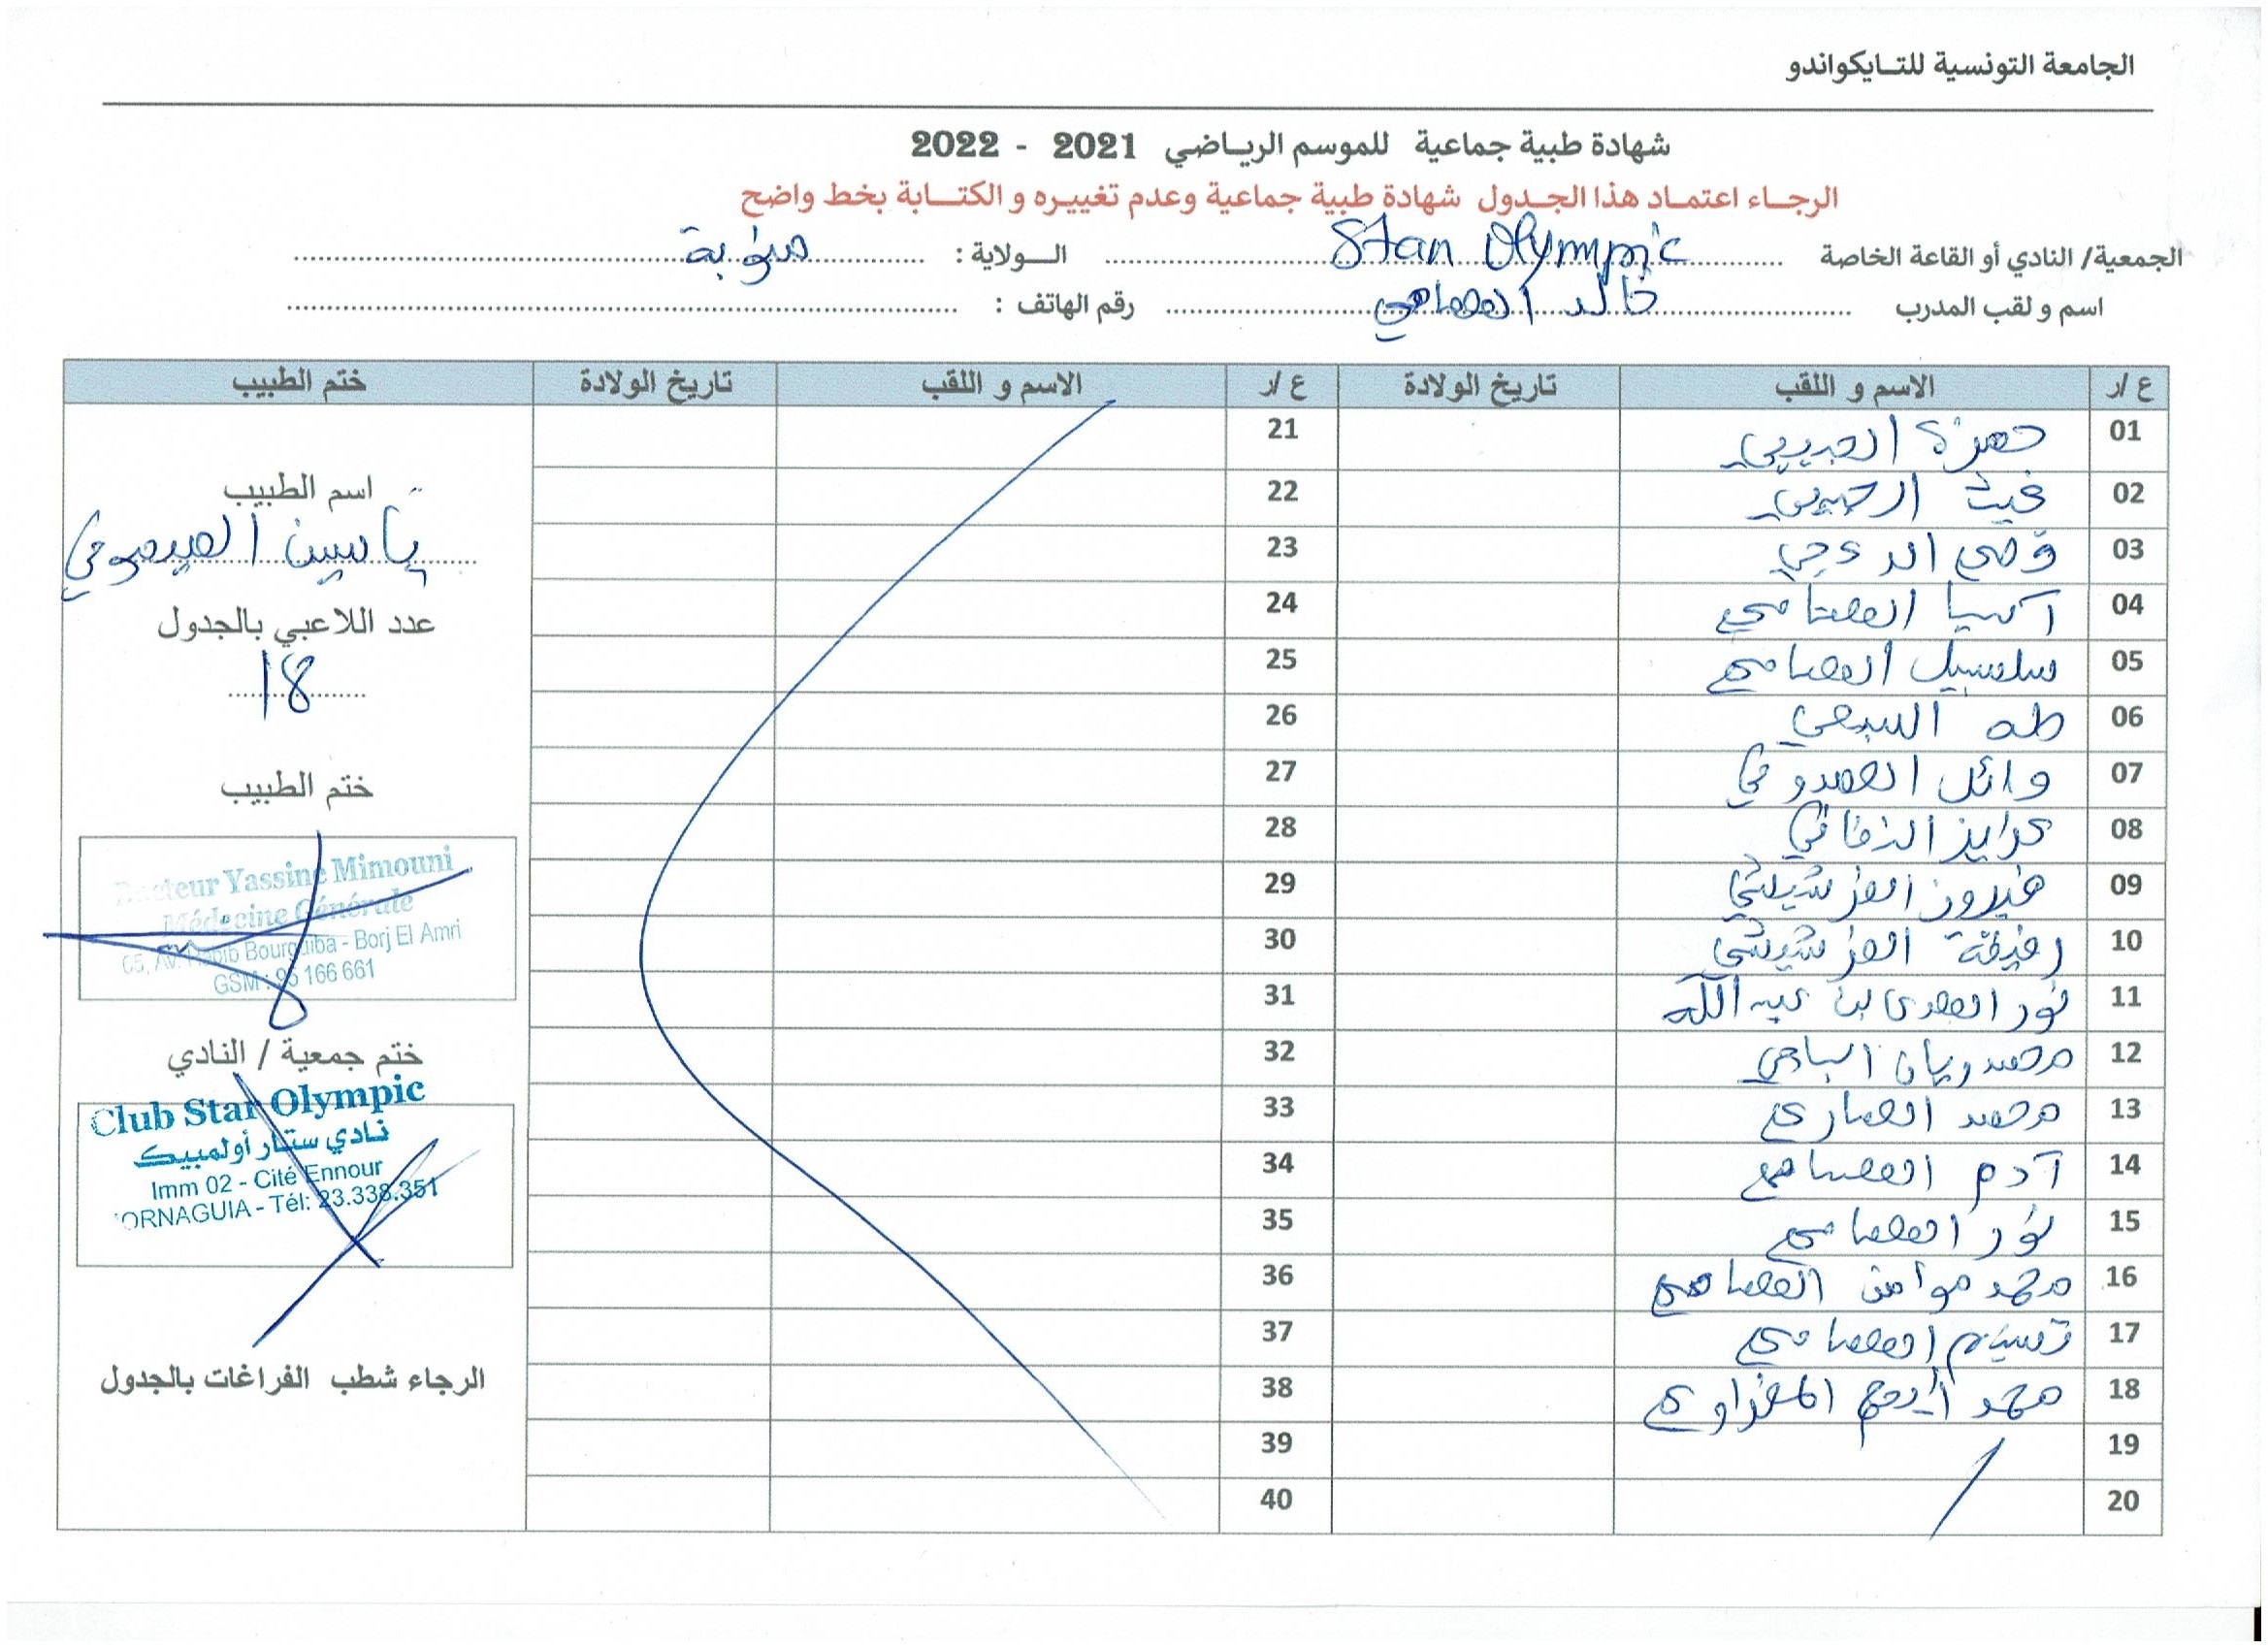 الجامعة التونسية للتـايكواندو
شهادة طبية جماعية للموسم الرياضي 2021 - 2022
الرجاء اعتماد هذا الجدول شهادة طبية جماعية وعدم تغييره و الكتابة بخط واضح
الجمعية/ النادي أو القاعة الخاصة Star Olympic الولاية : منوبة
اسم و لقب المدرب خالد رقم الهاتف :
ع /ر الاسم و اللقب تاريخ الولادة ع /ر الاسم و اللقب تاريخ الولادة ختم الطبيب
01 حمزة 21
02 غيث 22
03 قصي 23
04 آسيا 24
05 سلسبيل 25
06 طه السبعي 26
07 وائل 27
08 28
09 فيروز 29
10 رفيقة 30
11 نور الهدى بن عبد الله 31
12 محمد ريان الباجي 32
13 محمد 33
14 آدم 34
15 نور 35
16 محمد مؤمن 36
17 تسنيم 37
18 محمد 38
19 39
20 40
اسم الطبيب
ياسين الميموني
عدد اللاعبي بالجدول
18
ختم الطبيب
Docteur Yassine Mimouni
Médecine Générale
65, Av. Habib Bourguiba - Borj El Amri
GSM : 95 166 661
ختم جمعية / النادي
Club Star Olympic
نادي ستار أولمبيك
Imm 02 - Cité Ennour
ORNAGUIA - Tél: 23.338.351
الرجاء شطب الفراغات بالجدول